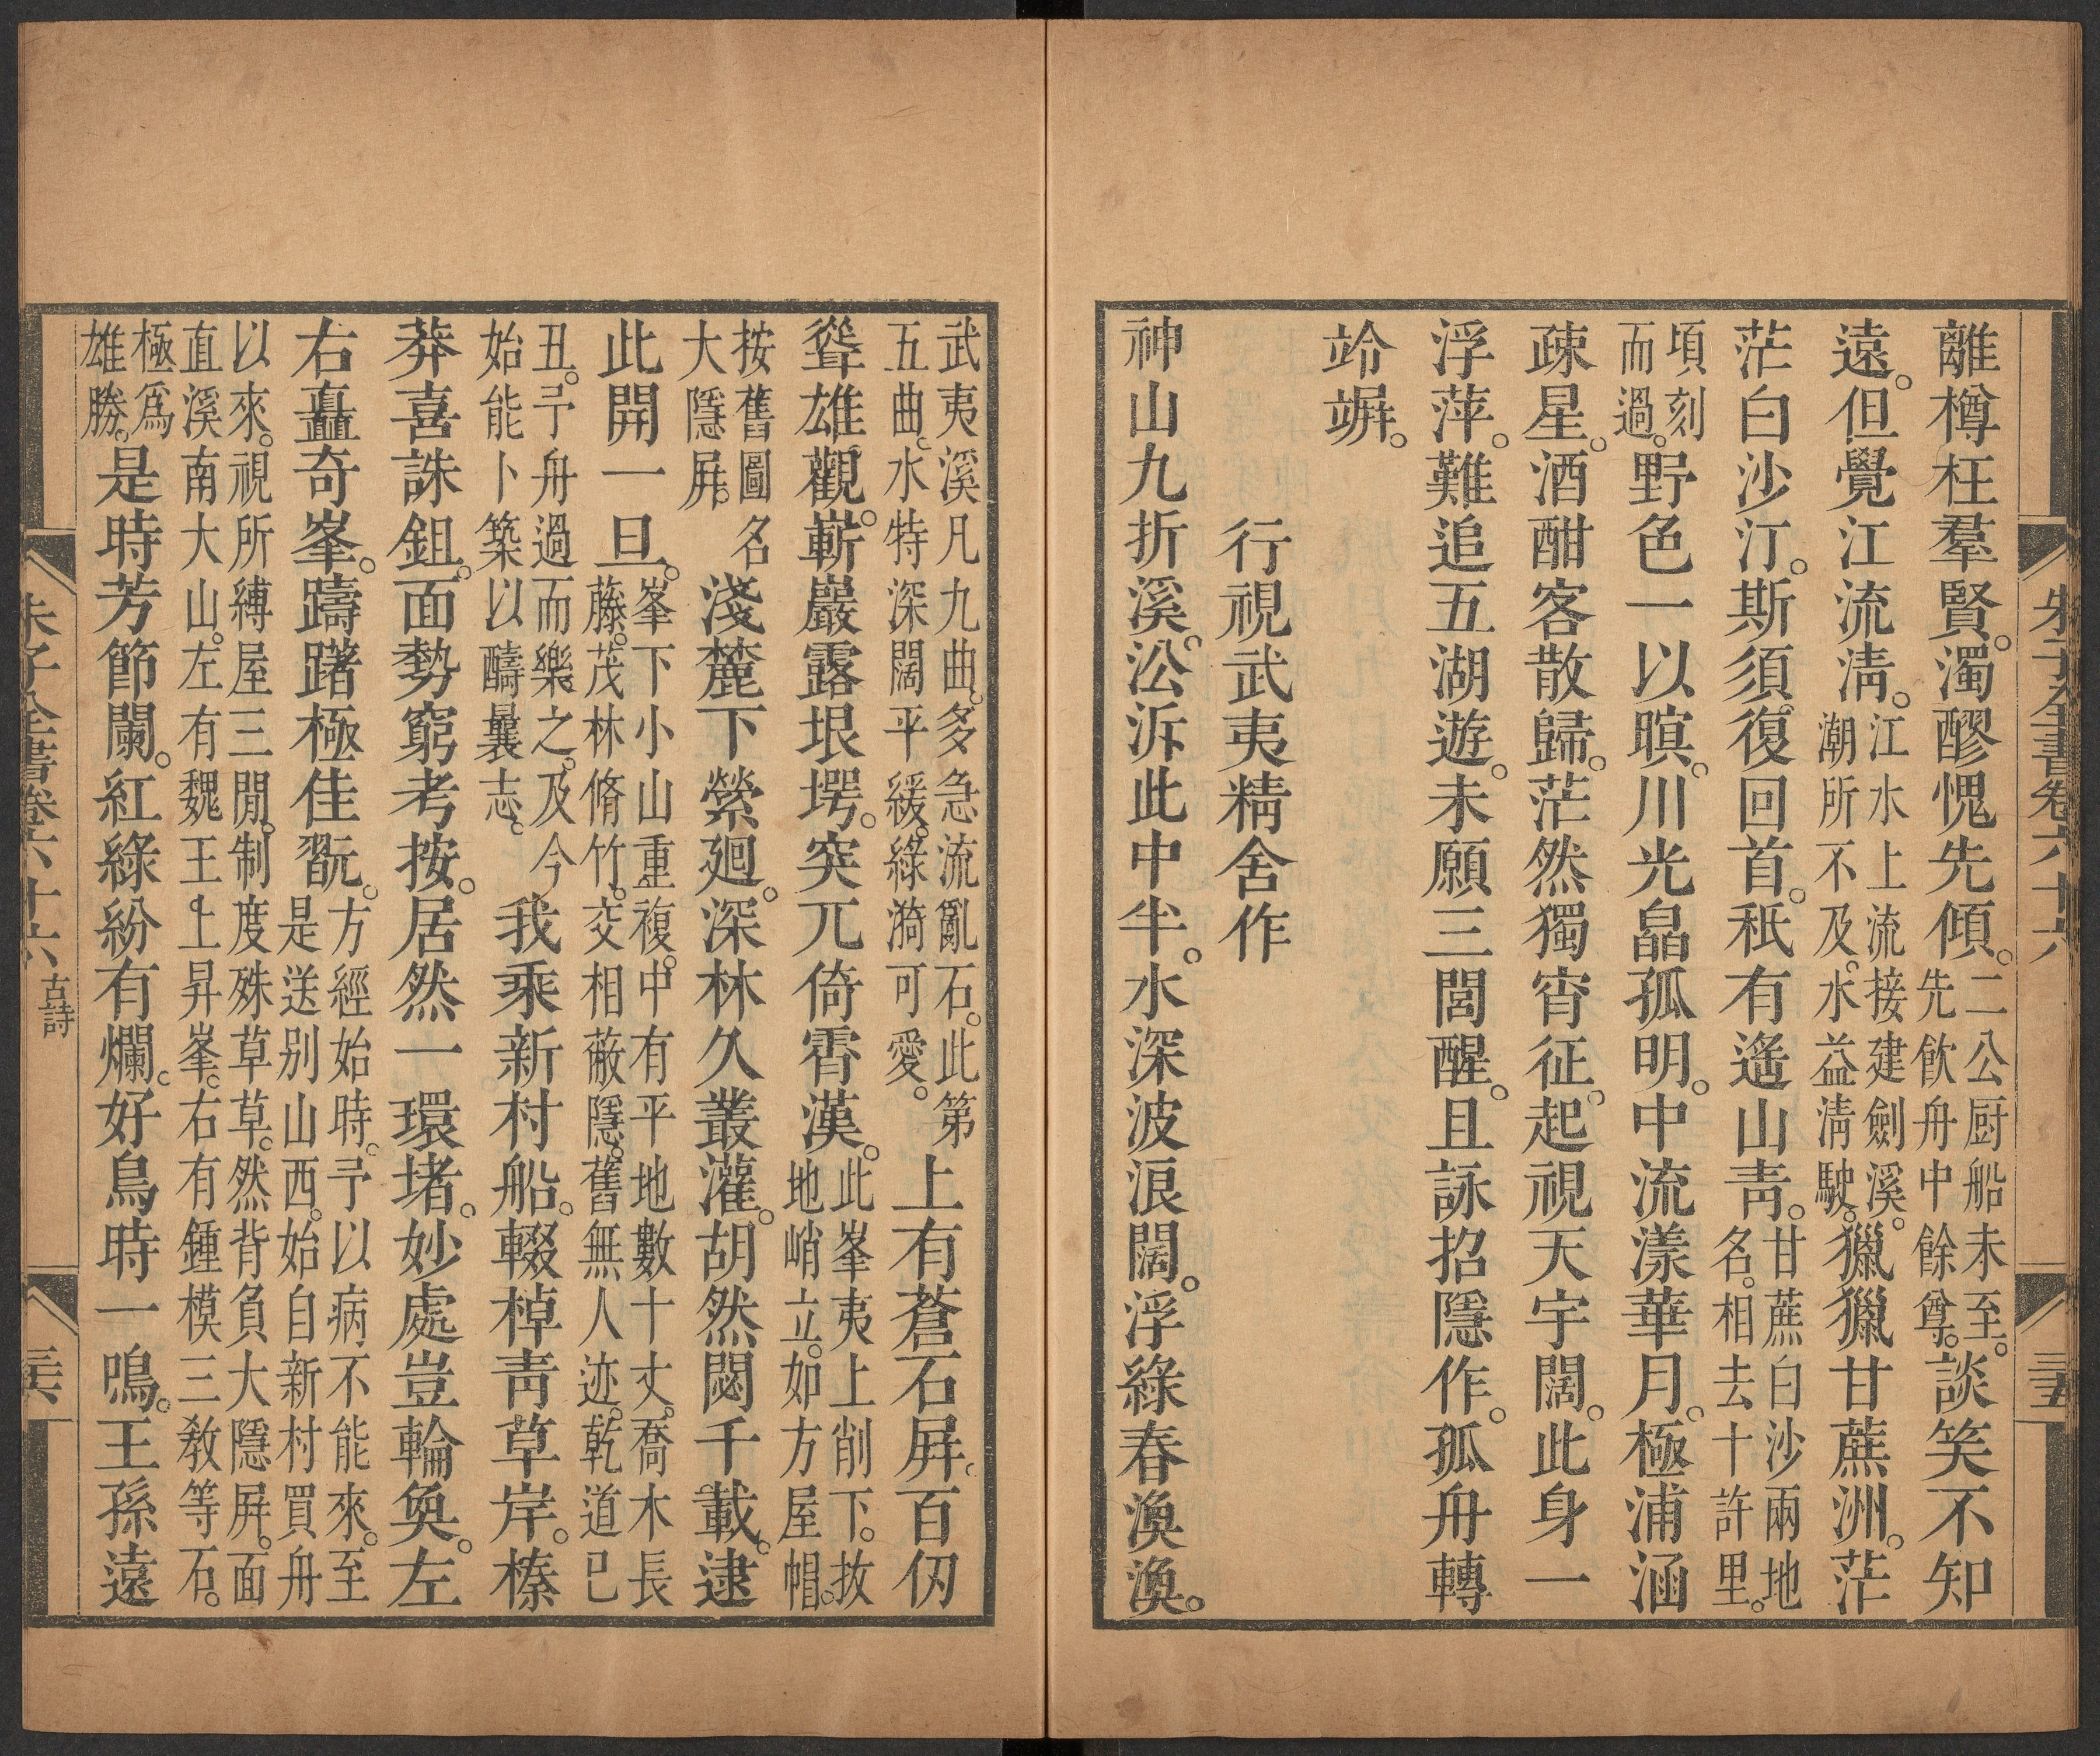 朱子全書卷六十六
三五
離樽枉羣賢。濁醪愧先傾。二公厨船未至。先飲舟中餘尊。談笑不知
遠。但覺江流淸。江水上流接建劍溪。潮所不及。水益淸駛。獵獵甘蔗洲。茫
茫白沙汀。斯須復回首。秖有遙山靑。甘蔗白沙兩地名。相去十許里。
頃刻而過。野色一以暝。川光皛孤明。中流漾華月。極浦涵
疎星。酒酣客散歸。茫然獨宵征。起視天宇闊。此身一
浮萍。難追五湖遊。未願三閭醒。且詠招隱作。孤舟轉
竛竮。
行視武夷精舍作
神山九折溪。㳂泝此中半。水深波浪闊。浮綠春渙渙。
武夷溪凡九曲。多急流亂石。此第五曲。水特深闊平緩。綠漪可愛。上有蒼石屛。百仞
聳雄觀。嶄巖露垠堮。突兀倚霄漢。此峯夷上削下。拔地峭立。如方屋帽。
按舊圖名大隱屛。淺麓下縈廻。深林久叢灌。胡然閟千載。逮
此開一旦。峯下小山重複。中有平地數十丈。喬木長藤。茂林脩竹。交相蔽隱。舊無人迹。乾道己
丑。予舟過而樂之。及今始能卜築以疇曩志。我乘新村船。輟棹靑草岸。榛
莽喜誅鉏。面勢窮考按。居然一環堵。妙處豈輪奐。左
右矗奇峯。躊躇極佳翫。方經始時。予以病不能來。至是送别山西。始自新村買舟
以來。視所縛屋三間。制度殊草草。然背負大隱屛。面直溪南大山。左有魏王上昇峯。右有鍾模三敎等石。
極爲雄勝。是時芳節闌。紅綠紛有爛。好鳥時一鳴。王孫遠
朱子全書卷六十六 古詩
三六